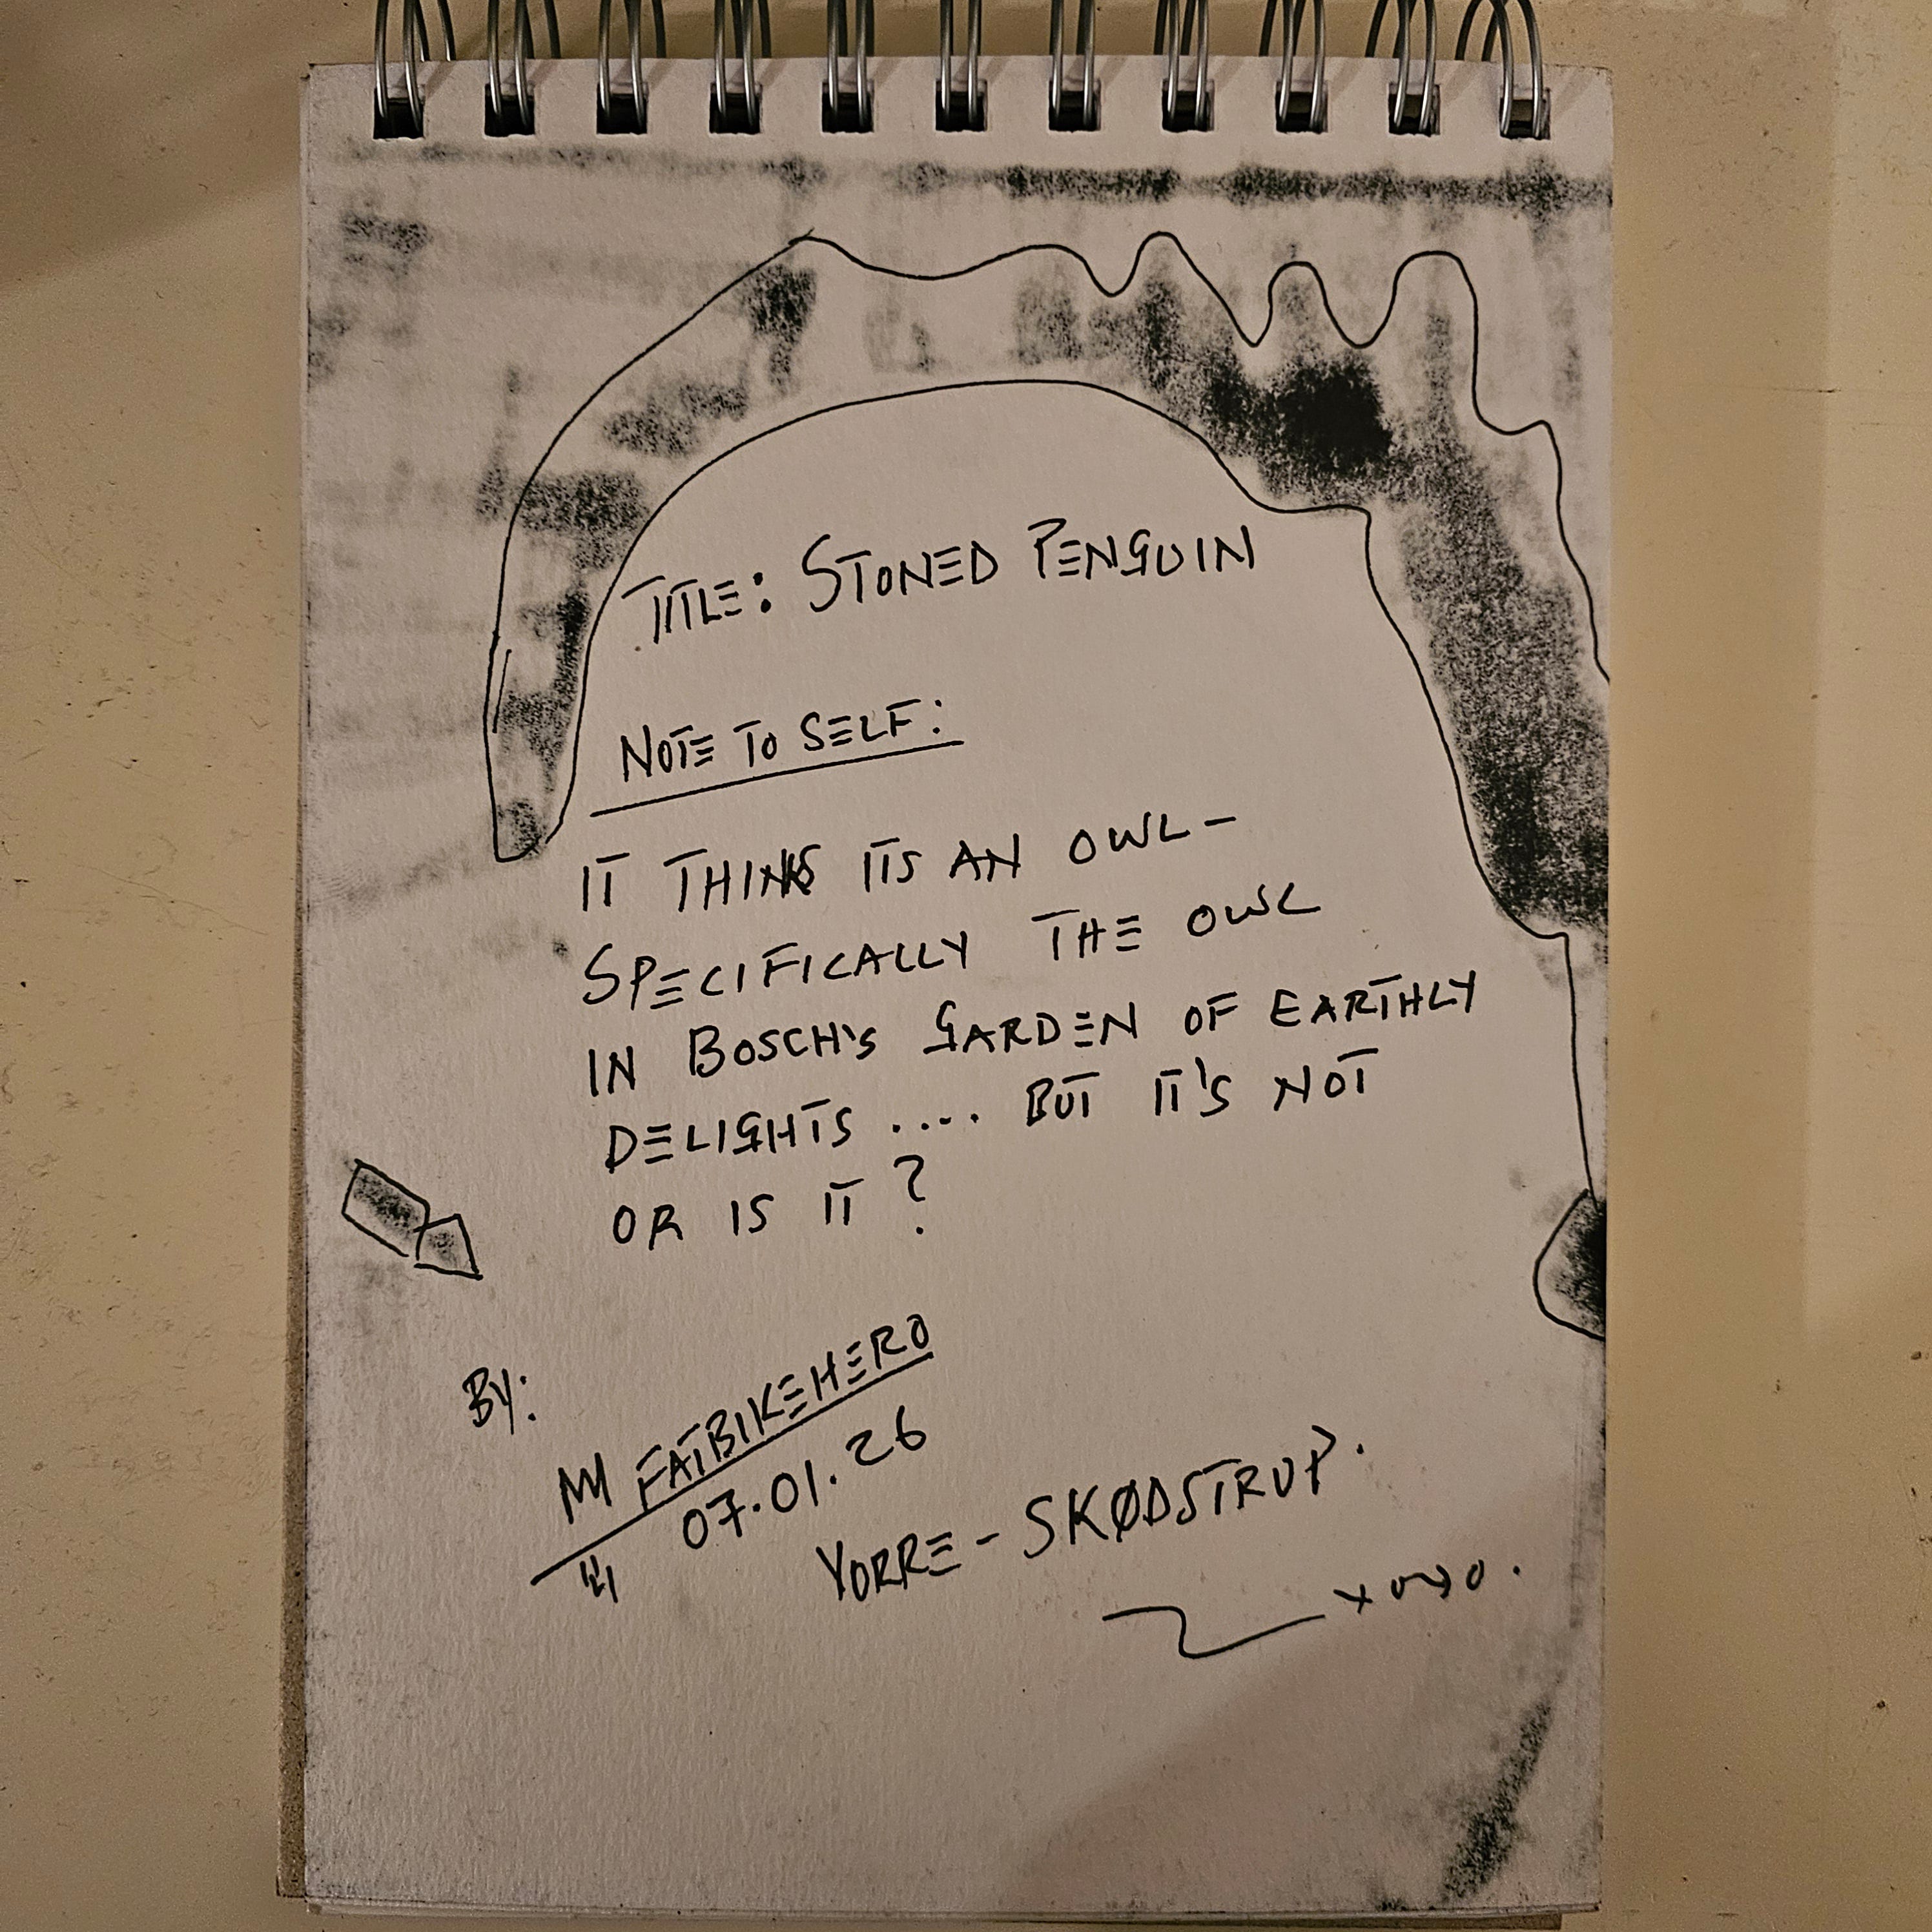 TITLE: STONED PENGUIN
NOTE TO SELF:
IT THINKS ITS AN OWL-
SPECIFICALLY THE OWL
IN BOSCH'S GARDEN OF EARTHLY
DELIGHTS .... BUT IT'S NOT
OR IS IT ?
BY:
FATBIKEHERO
07.01.26
YORRE-SKØDSTRUP.